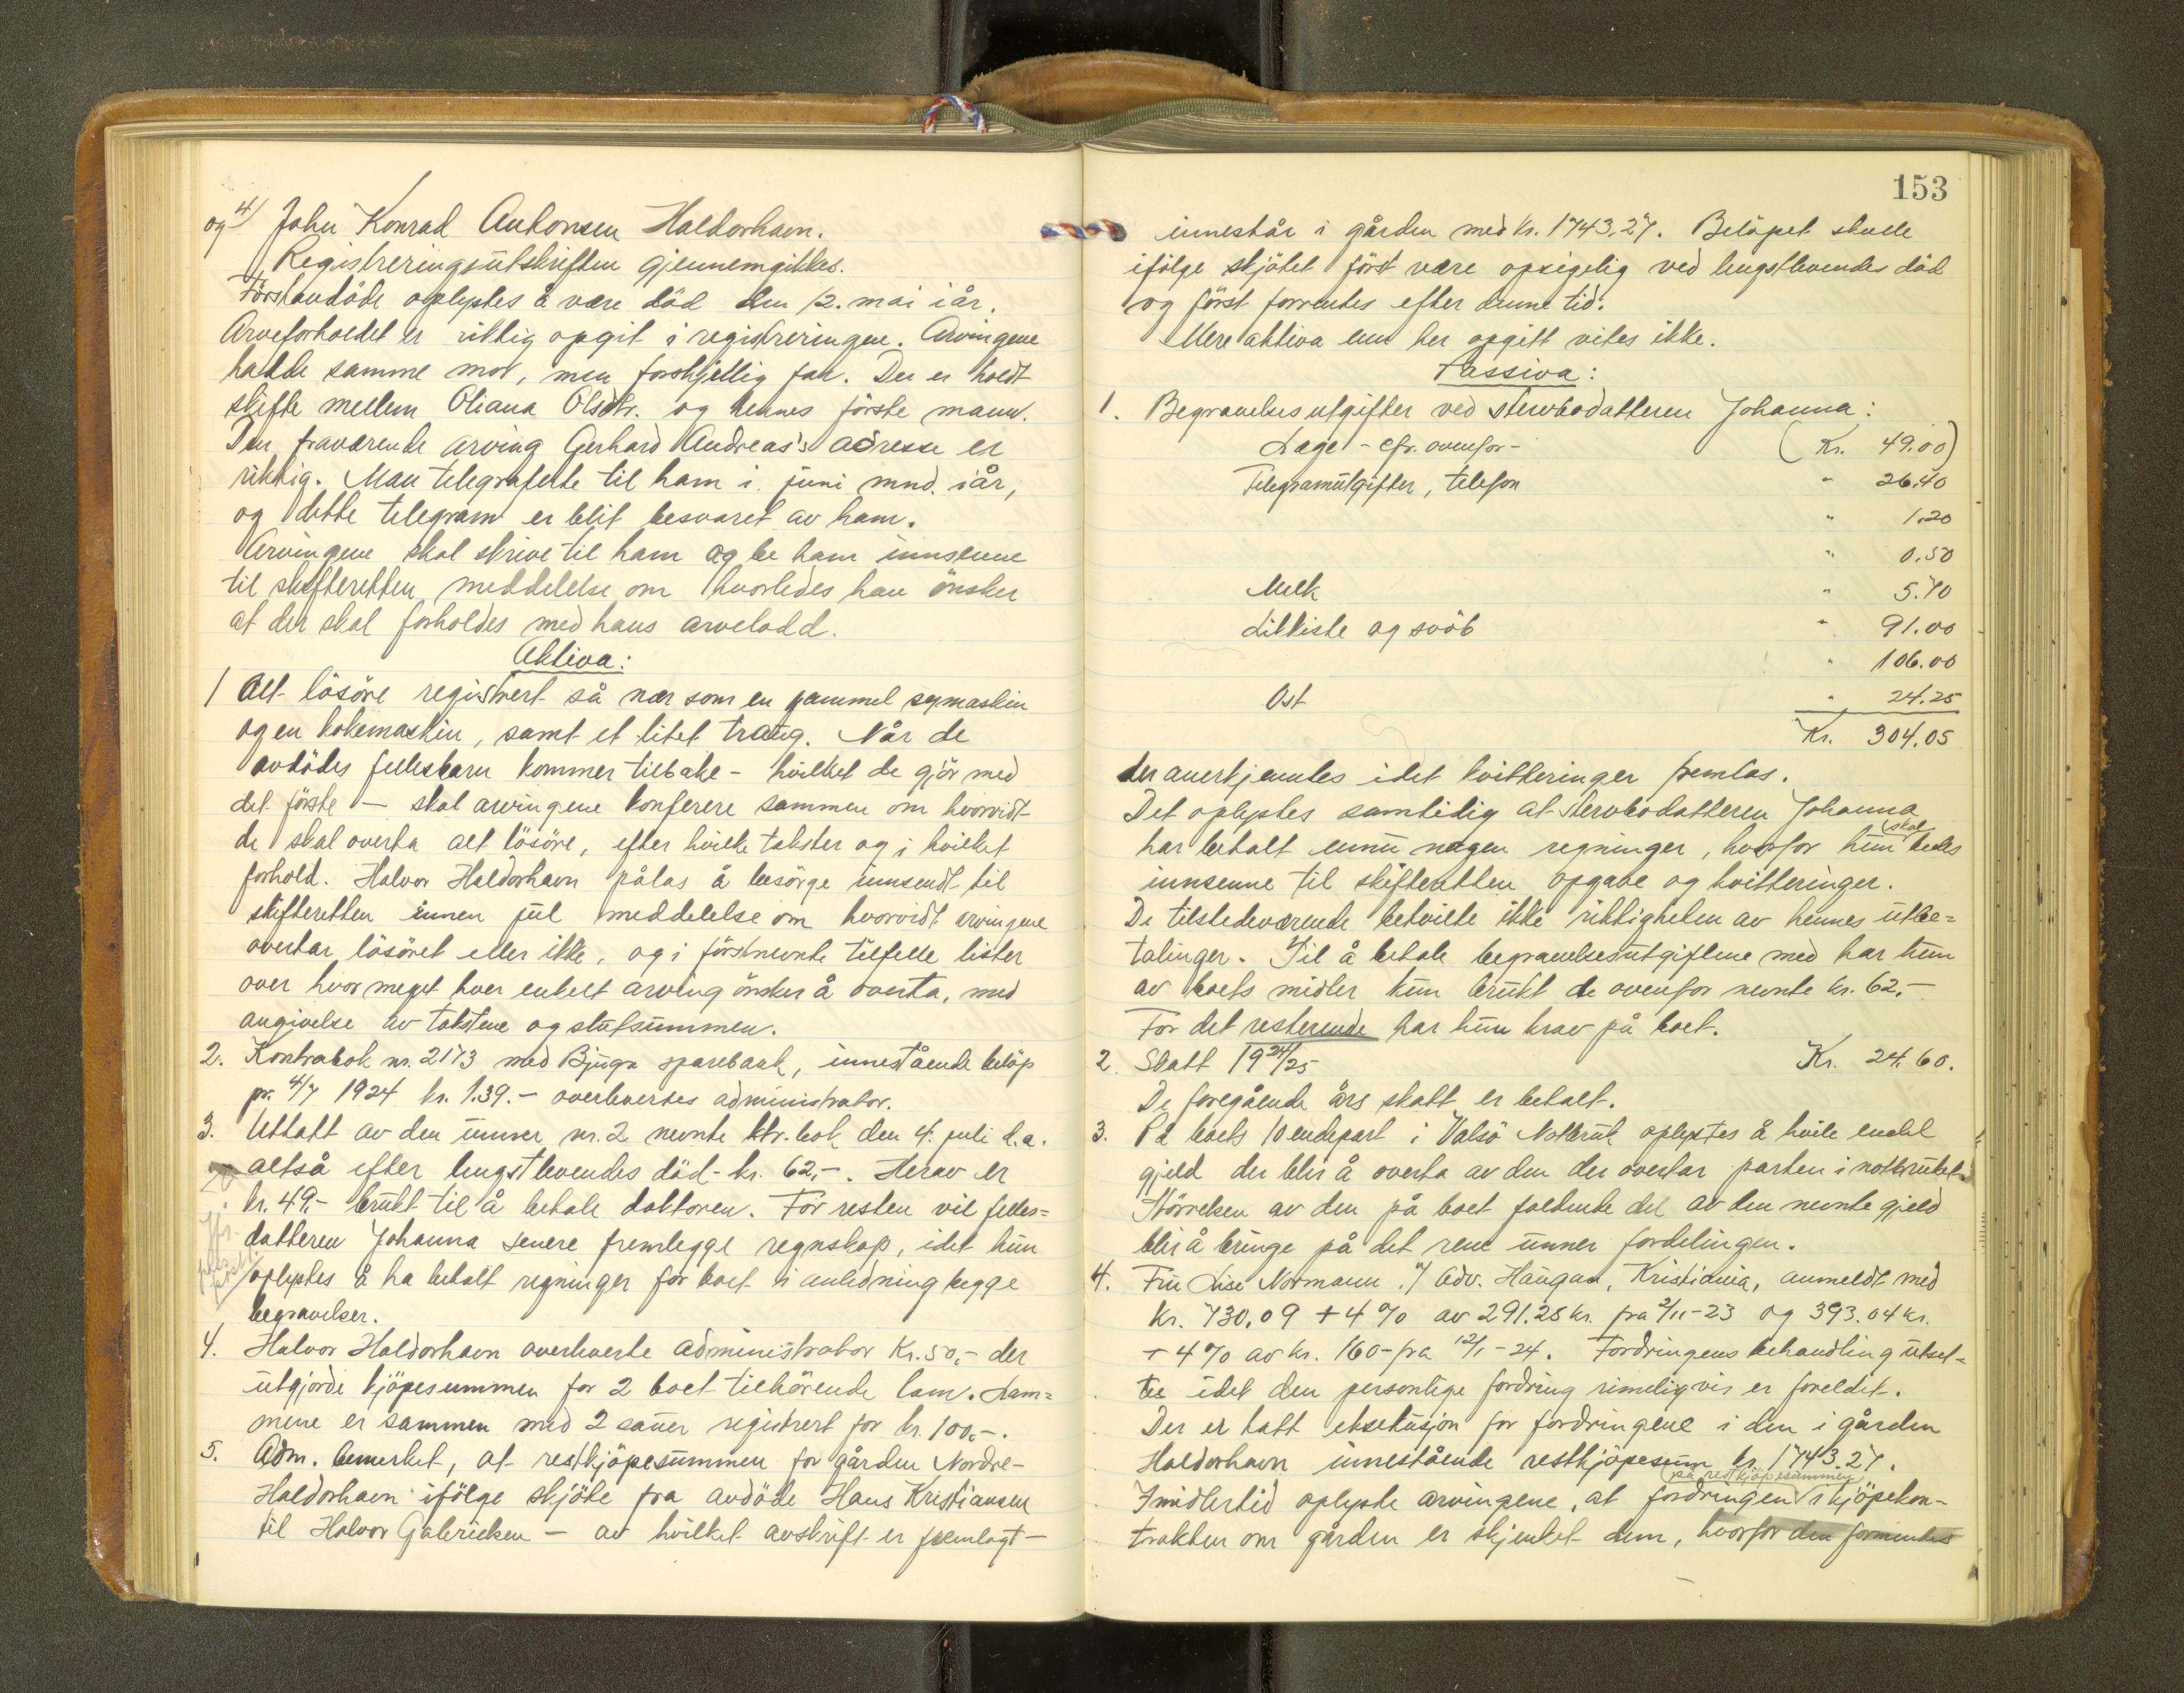 og 4) John Konrad Antonsen Haldorhavn.
Registreringsutskriften gjennemgikkes.
Førstavdöde oplystes å være död den 12. mai iår.
Arveforholdet er riktig opgit i registreringen. Arvingene
hadde samme mor, men forskjellig far. Der er holdt
skifte mellem Oliana Olsdtr. og hennes förste mann.
Den fraværende arving Gerhard Andreas's adresse er
riktig. Man telegraferte til ham i juni mnd. iår,
og dette telegram er blit besvaret av ham.
Arvingene skal skrive til ham og be ham innsenne
til skifteretten meddelelse om hvorledes han önsker
at der skal forholdes med hans arvelodd.
Aktiva:
1 Alt lösöre registrert så nær som en gammel symaskin
og en kokemaskin, samt et litet traug. Når de
avdödes fellesbarn kommer tilbake - hvilket de gjör med
det förste - skal arvingene konferere sammen om hvorvidt
de skal overta alt lösöre, efter hvilke takster og i hvilket
forhold. Halvor Haldorhavn pålas å besörge innsendt til
skifteretten innen jul meddelelse om hvorvidt arvingene
overtar lösöret eller ikke, og i förstnevnte tilfelle lister
over hvor meget hver enkelt arving önsker å overta, med
angivelse av takstene og slutsummen.
2. Kontrabok nr. 2173 med Bjugn sparebank, innestående belöp
pr. 4/7 1924 kr. 1.39.- overleverses administrator.
3. Uttatt av den unner nr. 2 nevnte ktr. bok den 4. juli d.a.
altså efter lengstlevendes död - kr. 62,-. Herav er
kr. 49,- brukt til å betale doktoren. For resten vil felles=
datteren Johanna senere fremlegge regnskap, idet hun
oplystes å ha betalt regninger for boet i anledning begge
begravelser.
4. Halvor Haldorhavn overleverte administrator Kr. 50,- der
utgjorde kjöpesummen for 2 boet tilhörende lam. Lam=
mene er sammen med 2 sauer registrert for kr. 100,-.
5. Adm. bemerket, at restkjöpesummen for gården Nordre-
Haldorhavn ifölge skjöte fra avdöde Hans Kristiansen
til Halvor Gabrielsen - av hvilket avskrift er fremlagt -
153
innestår i gården med kr. 1743,27. Belöpet skulle
ifölge skjötet först være opsigelig ved lengstlevendes död
og först forrentes efter denne tid.
Mere aktiva enn her opgitt vites ikke.
Passiva:
1. Begravelsesutgifter ved stervbodatteren Johanna:
Læge - cfr. ovenfor - (Kr. 49.00)
Telegramutgifter, telefon " 26.40
" 1.20
" 0.50
Melk " 5.70
Likkiste og svöb " 91.00
" 106.00
Ost " 24.25
Kr. 304.05
der anerkjentes idet kvitteringer fremlas.
Det oplystes samtidig at stervbodatteren Johanna
har betalt ennu nogen regninger, hvorfor hun skal
innsenne til skifteretten opgave og kvitteringer.
De tilstedeværende betvilte ikke riktigheten av hennes utbe=
talinger. Til å betale begravelsesutgiftene med har hun
av boets midler kun brukt de ovenfor nevnte kr. 62.-
For det resterende har hun krav på boet.
2. Skatt 1924/25 Kr. 24.60.
De foregående års skatt er betalt.
3. På boets 10endepart i Valsö Notbruk oplystes å hvile endel
gjeld der blir å overta av den der overtar parten i notbruket.
Störrelsen av den på boet faldende del av den nevnte gjeld
blir å bringe på det rene unner fordelingen.
4. Fru Lise Normann v/ Adv. Haugan, Kristiania, anmeldt med
Kr. 730,09 + 4 % av 291.28 kr. fra 2/11-23 og 393.04 kr.
+ 4 % av kr. 160- fra 12/1-24. Fordringens behandling utset=
tes idet den personlige fordring rimeligvis er foreldet.
Der er tatt eksekusjon for fordringene i den i gården
Haldorhavn innestående restkjöpesum kr. 1743.27.
Imidlertid oplyste arvingene, at fordringen (på restkjöpesummen) i kjöpekon-
trakten om gården er skjenket dem, hvorfor den formentes